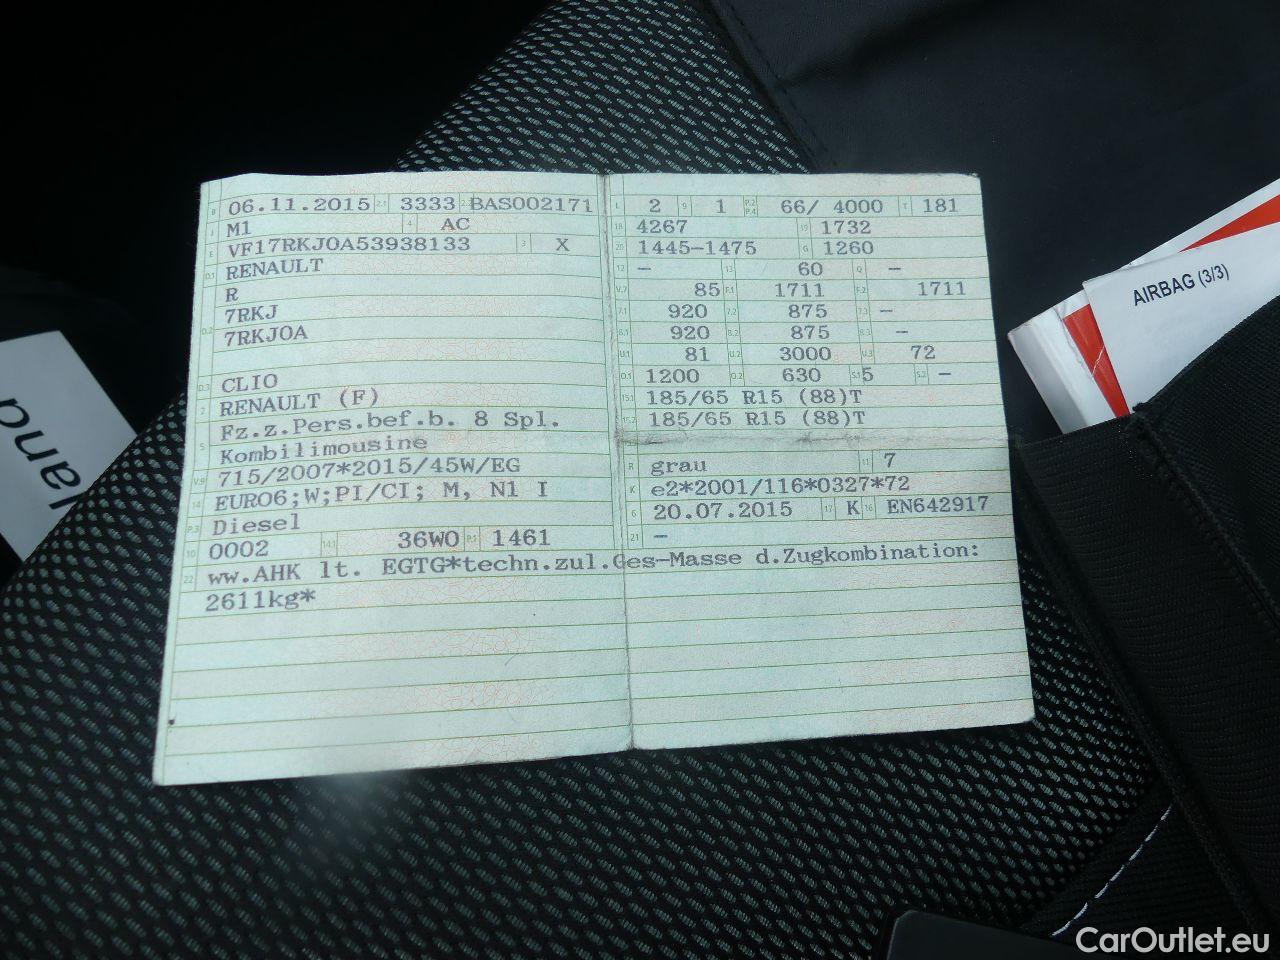 B 06.11.2015 2.1 3333 2.2 BAS002171
J M1 4 AC
E VF17RKJOA53938133 3 X
D.1 RENAULT
R
D.2 7RKJ
7RKJOA
D.3 CLIO
2 RENAULT (F)
Fz.z.Pers.bef.b. 8 Spl.
5 Kombilimousine
V.9 715/2007*2015/45W/EG
14 EURO6;W;PI/CI; M, N1 I
P.3 Diesel
10 0002 14.1 36WO P.1 1461
L 2 9 1 P.2 P.4 66/ 4000 T 181
18 4267 19 1732
20 1445-1475 G 1260
12 - 13 60 Q -
V.7 85 F.1 1711 F.2 1711
7.1 920 7.2 875 7.3 -
8.1 920 8.2 875 8.3 -
U.1 81 U.2 3000 U.3 72
O.1 1200 O.2 630 S.1 5 S.2 -
15.1 185/65 R15 (88)T
15.2 185/65 R15 (88)T
R grau 11 7
K e2*2001/116*0327*72
6 20.07.2015 17 K 16 EN642917
21 -
22 ww.AHK lt. EGTG*techn.zul.Ges-Masse d.Zugkombination:
2611kg*
AIRBAG (3/3)
CarOutlet.eu